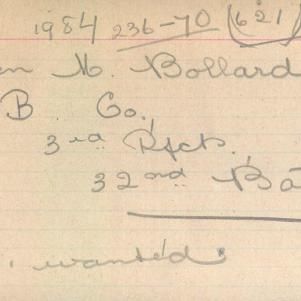 1984 236-70 (621)
en M. Bollard
B Co.,
3rd Rfcts.
32nd Ba
. wanted.